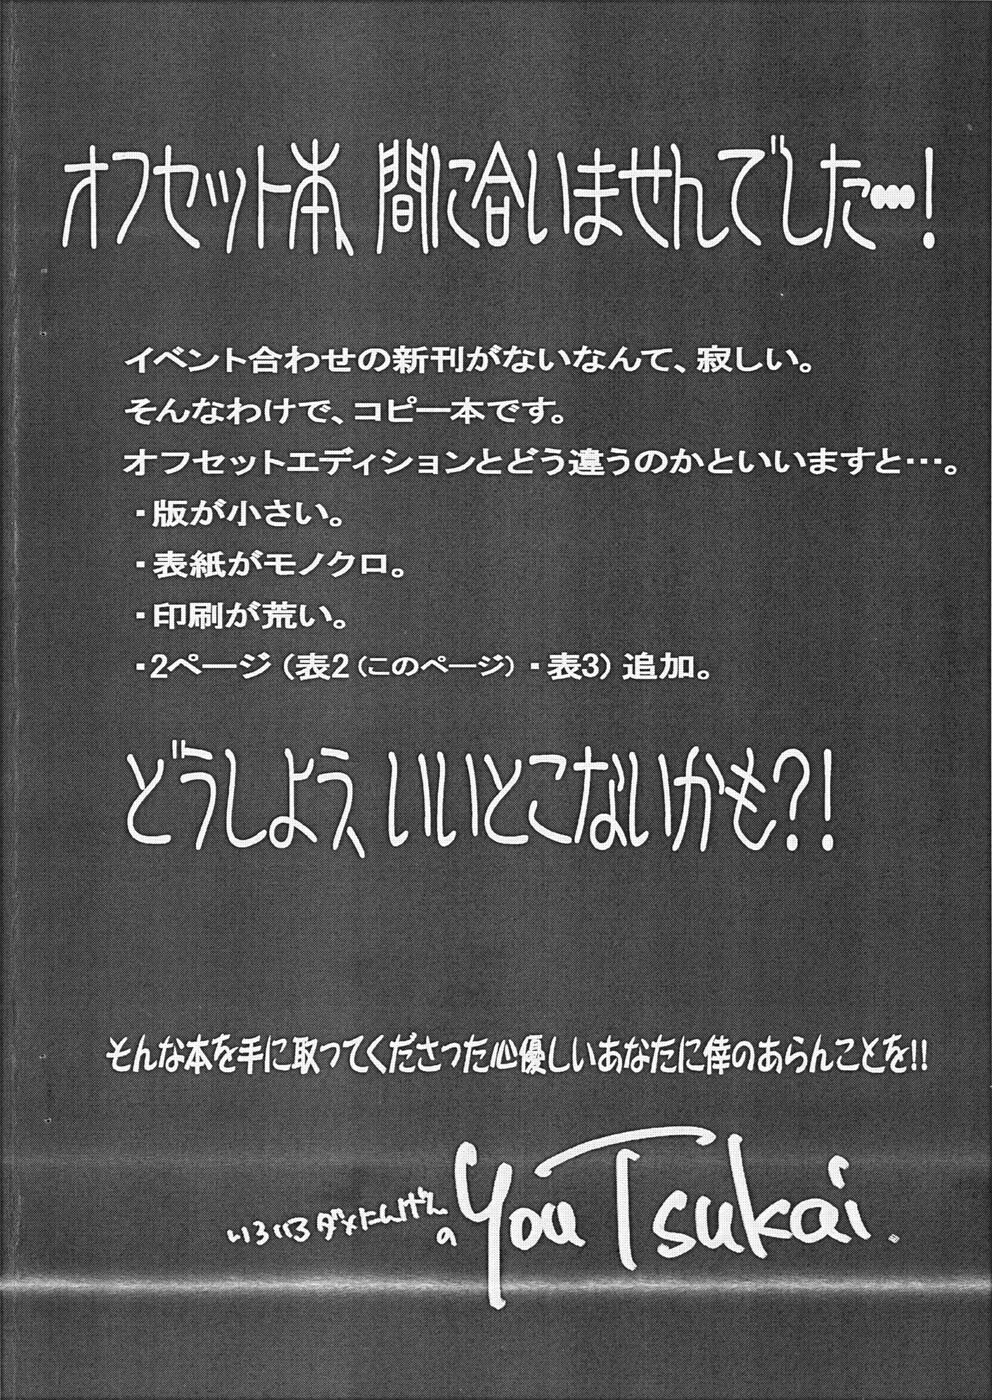 オフセット本、間に合いませんでした…!
イベント合わせの新刊がないなんて、寂しい。
そんなわけで、コピー本です。
オフセットエディションとどう違うのかといいますと…。
・版が小さい。
・表紙がモノクロ。
・印刷が荒い。
・2ページ(表2(このページ)・表3)追加。
どうしよう、いいとこないかも?!
そんな本を手に取ってくださった心優しいあなたに倖のあらんことを!!
いろいろダメにんげん
の You Tsukai.